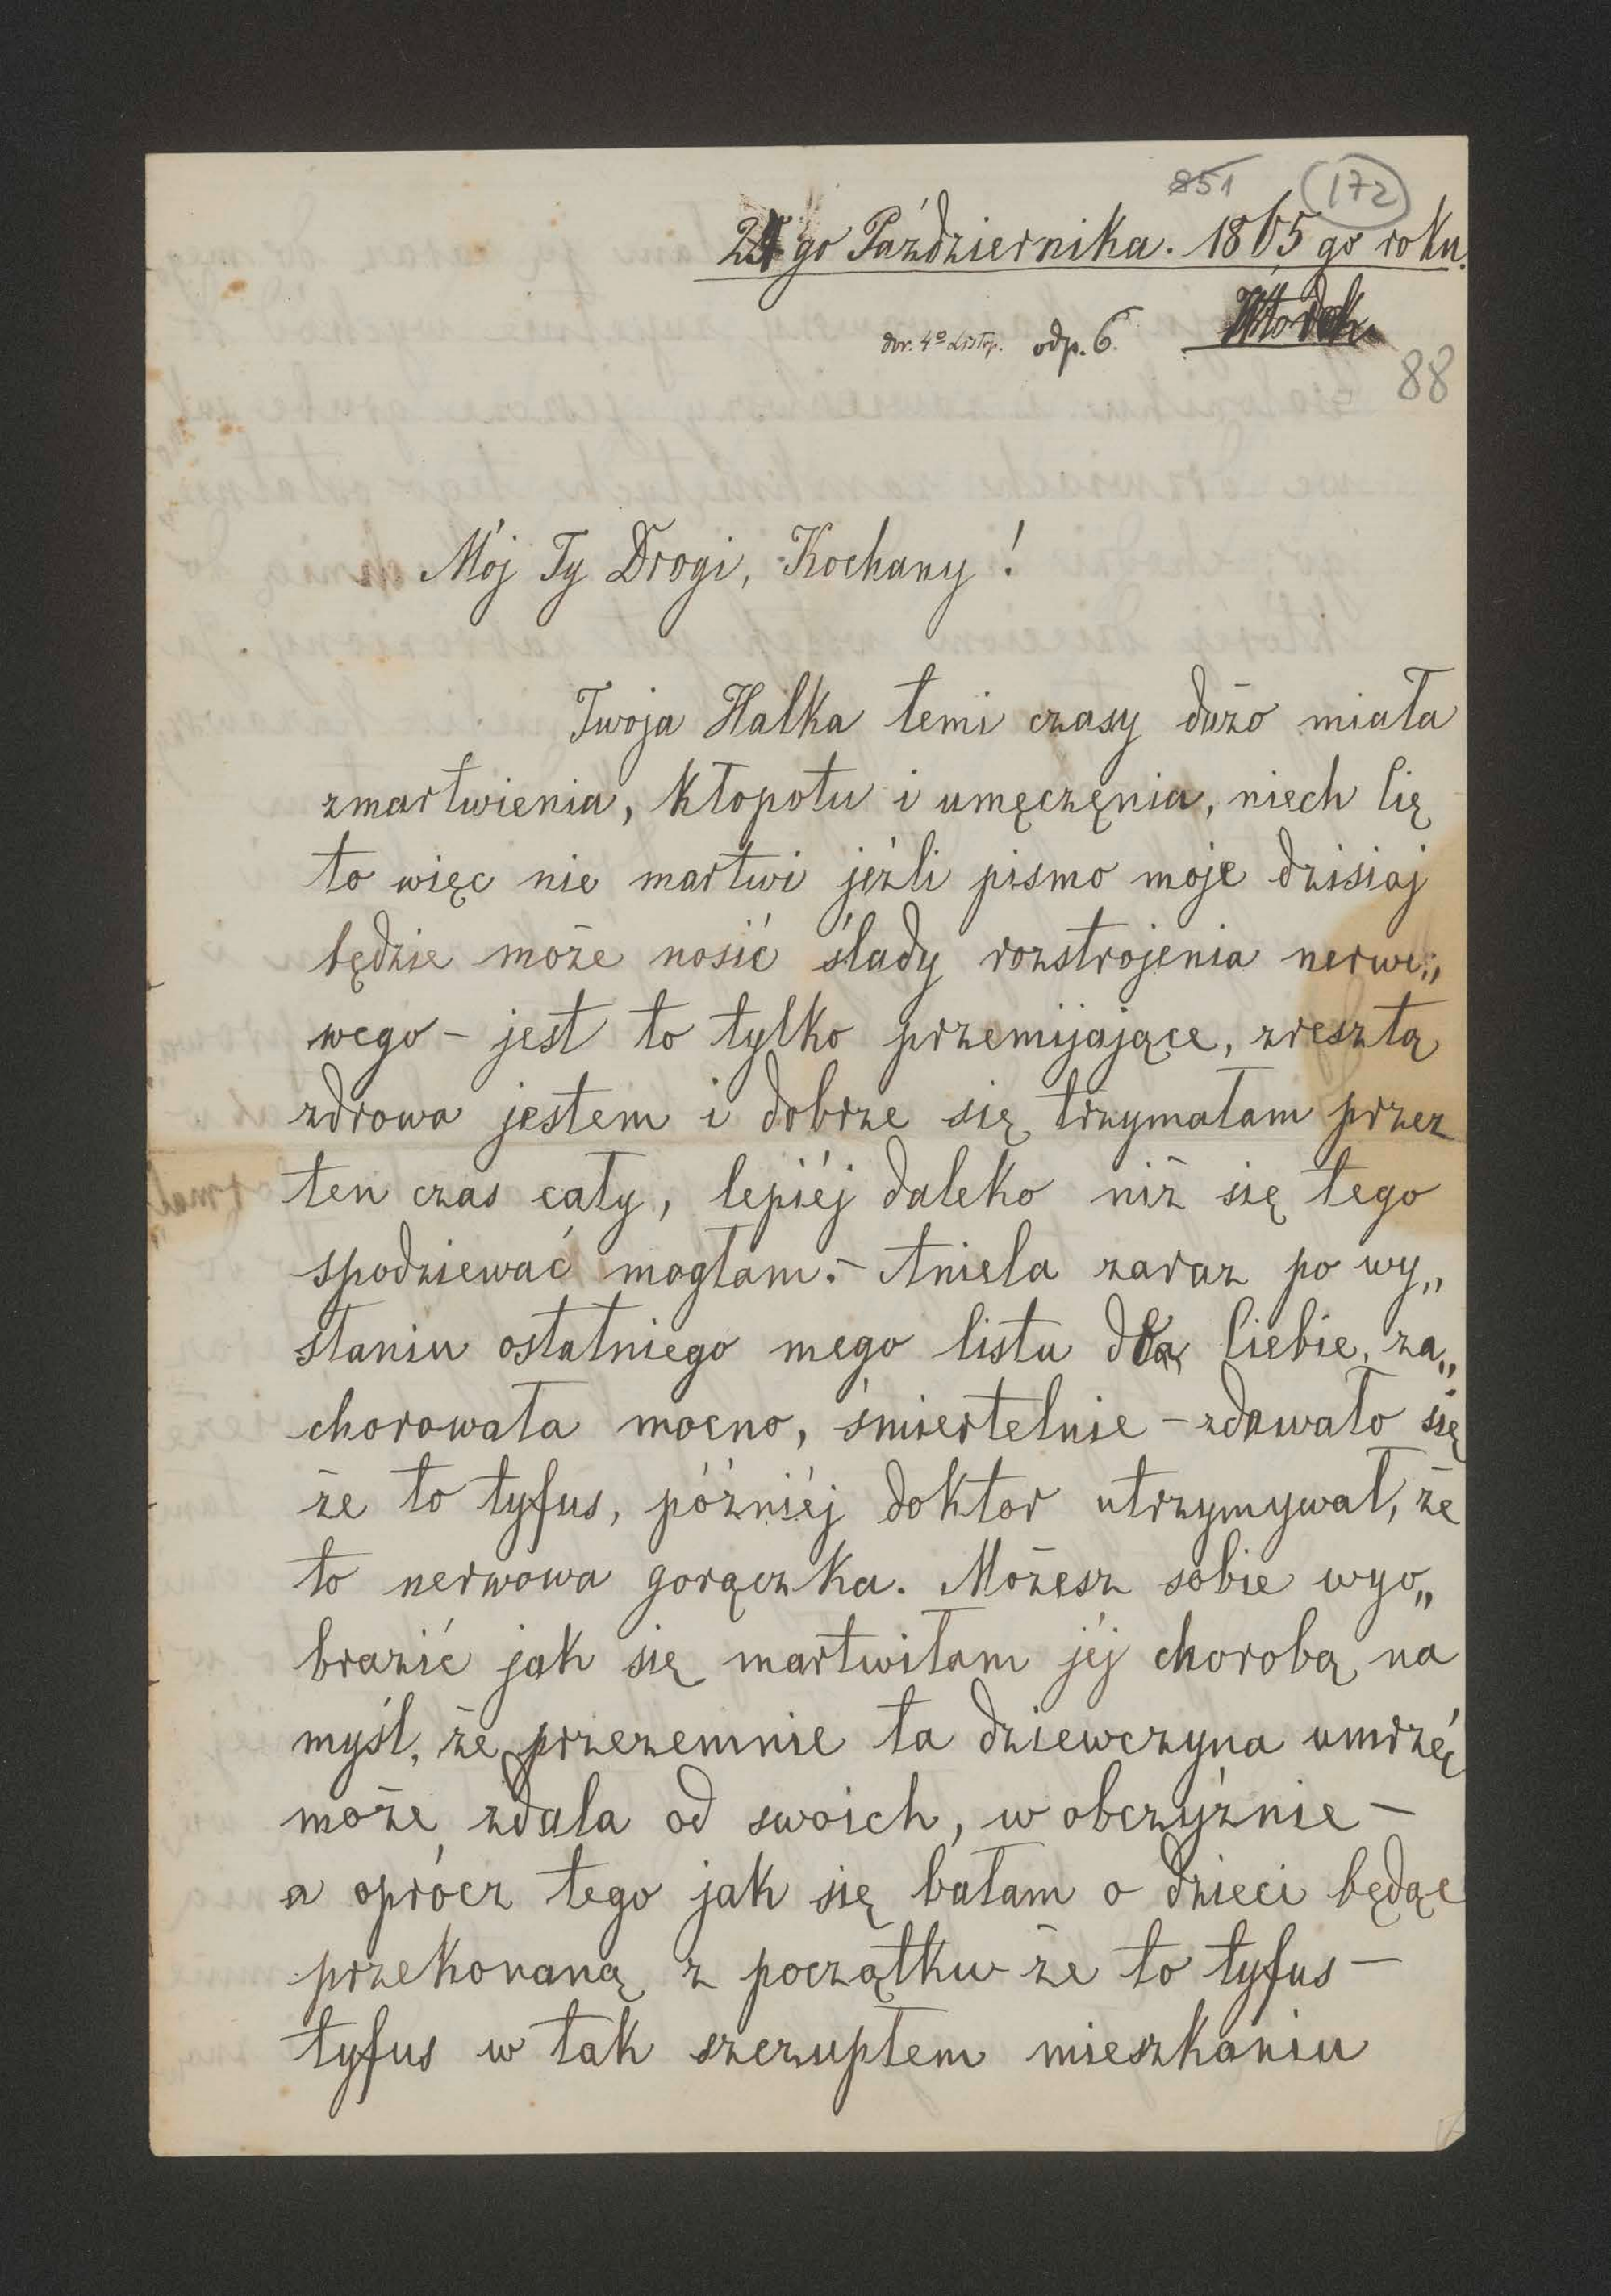 851 172
24 go Października. 1865 go roku.
Wtorek.
dor. 4º Listop. odp. 6.
88
Mój Ty Drogi, Kochany!
Twoja Halka temi czasy dużo miała
zmartwienia, kłopotu i umęczenia, niech Cię
to więc nie martwi jeźli pismo moje dzisiaj
będzie może nosić ślady rozstrojenia nerwo„
wego – jest to tylko przemijające, zresztą
zdrowa jestem i dobrze się trzymałam przez
ten czas cały, lepiéj daleko niż się tego
spodziewać mogłam. – Aniela zaraz po wy„
słaniu ostatniego mego listu dla Ciebie, za„
chorowała mocno, śmiertelnie – zdawało się
że to tyfus, późniéj doktor utrzymywał, że
to nerwowa gorączka. Możesz sobie wyo„
brazić jak się martwiłam jéj chorobą na
myśl, że przezemnie ta dziewczyna umrzéć
może zdala od swoich, w obczyźnie –
a oprócz tego jak się bałam o dzieci będąc
przekonaną z początku że to tyfus –
tyfus w tak szczupłem mieszkaniu